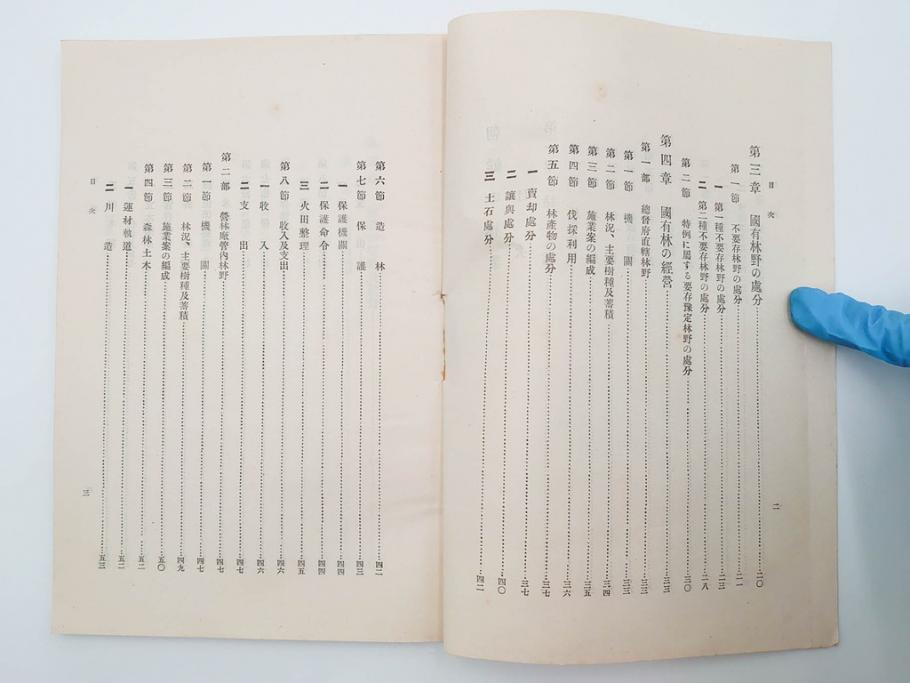 目次
二
第三章 國有林野の處分 二〇
第一節 不要存林野の處分 二一
一 第一種不要存林野の處分 二三
二 第二種不要存林野の處分 二八
第二節 特例に屬する要存豫定林野の處分 三〇
第四章 國有林の經營 三三
第一部 總督府直轄林野 三三
第一節 機關 三三
第二節 林況、主要樹種及蓄積 三四
第三節 施業案の編成 三五
第四節 伐採利用 三六
第五節 林產物の處分 三七
一 賣却處分 三七
二 讓與處分 四〇
三 土石處分 四二
第六節 造林 四二
第七節 保護 四三
一 保護機關 四四
二 保護命令 四四
三 火田整理 四五
第八節 收入及支出 四六
一 收入 四六
二 支出 四七
第二部 營林廠管內林野 四七
第一節 機關 四七
第二節 林況、主要樹種及蓄積 四九
第三節 施業案の編成 五〇
第四節 森林土木 五二
一 運材軌道 五二
二 川造 五三
目次
三